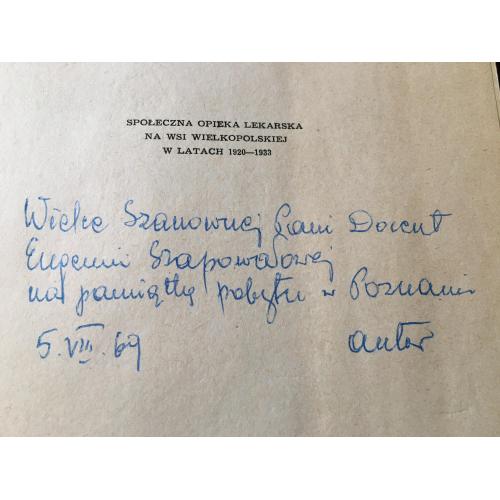 SPOŁECZNA OPIEKA LEKARSKA
NA WSI WIELKOPOLSKIEJ
W LATACH 1920—1933
Wielce Szanownej Pani Docent
Eugenii Szapowałowej
na pamiątkę pobytu w Poznaniu
5.VIII.69 autor